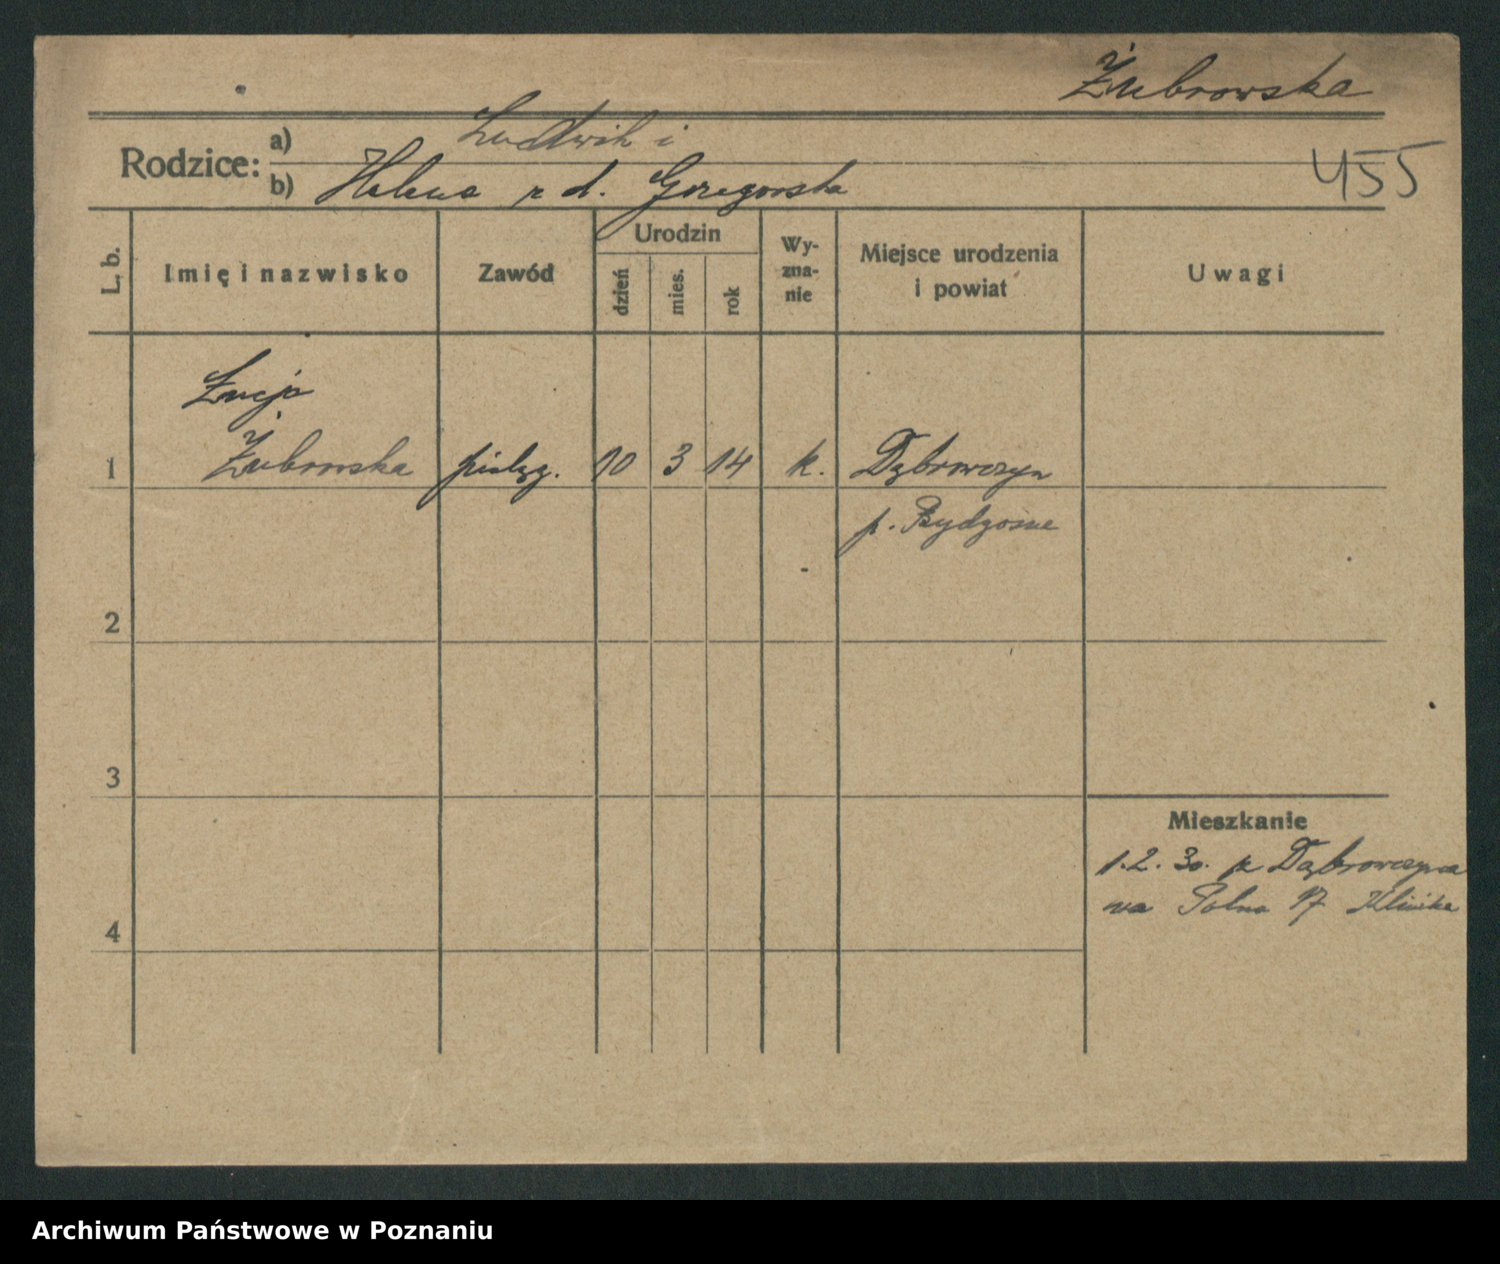 Żubrowska
Rodzice:
a) Ludwik i
b) Helena z d. Gorzegorska
455
L. b.
Imię i nazwisko
Zawód
Urodzin
dzień
mies.
rok
Wy-
zna-
nie
Miejsce urodzenia
i powiat
Uwagi
Łucja
1 Żubrowska pielęg. 10 3 14 k. Dąbrowczyn
p. Bydgoszcz
2
3
4
Mieszkanie
1.2.30. z Dąbrowczyna
na Polna 17 Klinika
Archiwum Państwowe w Poznaniu